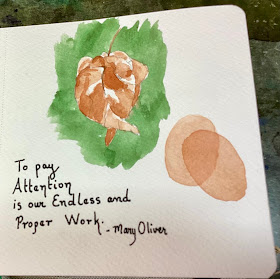 To pay
Attention
is our Endless and
Proper Work. - Mary Oliver